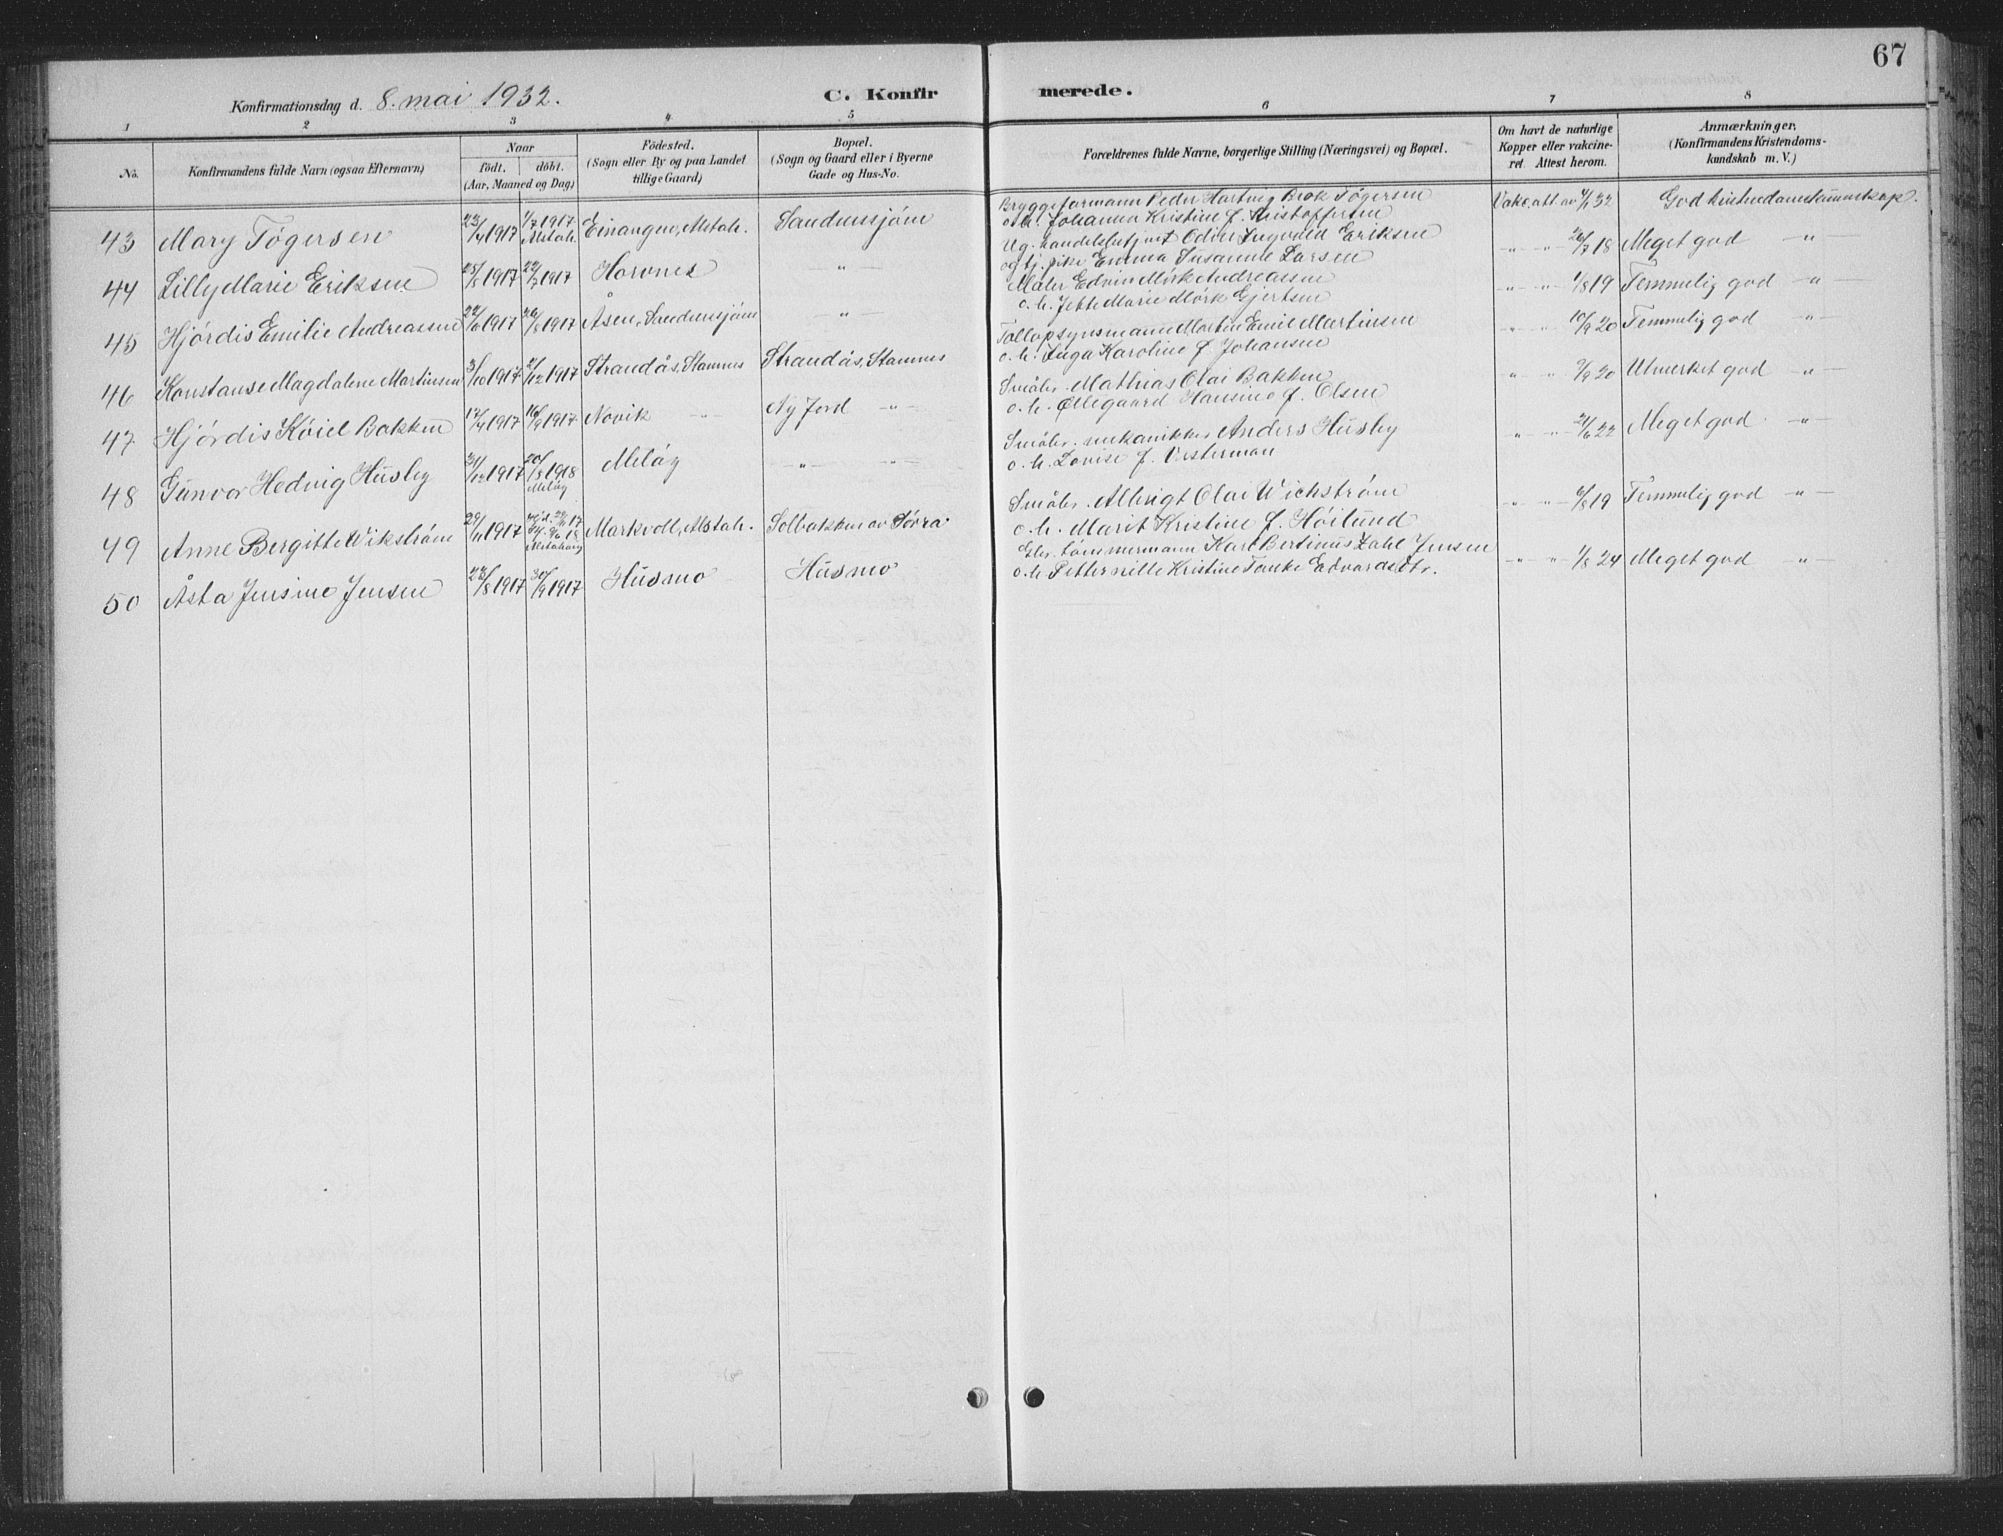 67
Konfirmationsdag d. 8. mai 1932.
C. Konfirmerede.
1 2 3 4 5 6 7 8
No.
Konfirmandens fulde Navn (ogsaa Efternavn)
Naar
födt. döbt.
(Aar, Maaned og Dag)
Födested.
(Sogn eller By og paa Landet
tillige Gaard)
Bopæl.
(Sogn og Gaard eller i Byerne
Gade og Hus-No.
Forældrenes fulde Navne, borgerlige Stilling (Næringsvei) og Bopæl.
Om havt de naturlige
Kopper eller vakcine-
ret Attest herom.
Anmærkninger.
(Konfirmandens Kristendoms-
kundskab m. V.)
43 Mary Tøgersen 23/4 1917 1/7 1917 Alstah. Einangen, Alstah. Sandnessjøen
Bryggeformann Peder Hartvig Brok Tøgersen
o. h. Johanna Kristine f. Kristoffersen
Vakc. att. av 4/1 32 God kristendomskunnskap.
44 Lilly Marie Eriksen 25/5 1917 22/7 1917 Horvnes -"-
Ug. handelsbetjent Odin Ingvald Eriksen
og tj. pike Emma Susanne Larsen
-"- -"- 26/7 18 Meget god -"-
45 Hjørdis Emilie Andreassen 22/6 1917 26/8 1917 Åsen, Sandnessjøen -"-
Maler Edvin Mörk Andreassen
o. h. Jette Marie Mørk Gjertsen
-"- -"- 1/8 19 Temmelig god -"-
46 Konstanse Magdalene Martinsen 3/10 1917 2/12 1917 Strandås, Stamnes Strandås, Stamnes
Tollopsynsmann Morten Emil Martinsen
o. h. Inga Karoline f. Johansen
-"- -"- 10/9 20 Temmelig god -"-
47 Hjørdis Köiel Bakken 17/4 1917 16/9 1917 Novik -"- Ny Jord -"-
Småbr. Mathias Olai Bakken
o. h. Ollegaard Hansine f. Olsen
" -"- 7/9 20 Utmerket god -"-
48 Gunvor Hedvig Husby 31/12 1917 20/8 1918 Meløy Meløy -"- -"-
Småbr. mekanikker Anders Husby
o. h. Lovise f. Vesterman
-"- -"- 21/6 22 Meget god -"-
49 Anne Bergitte Wikstrøm 29/11 1917 Alstahaug Markvoll, Alstah. Solbakken av Sørra
Småbr. Albrigt Olai Wichstrøm
o. h. Marit Kristine f. Höilund
-"- -"- 6/8 19 Temmelig god -"-
50 Åsta Jensine Jensen 23/8 1917 30/9 1917 Husmo Husmo
Gbr. tømmermann Karl Bertinus Zahl Jensen
o. h. Petternille Kristine Tanke Edvardsdtr.
-"- -"- 1/8 24 Meget god -"-